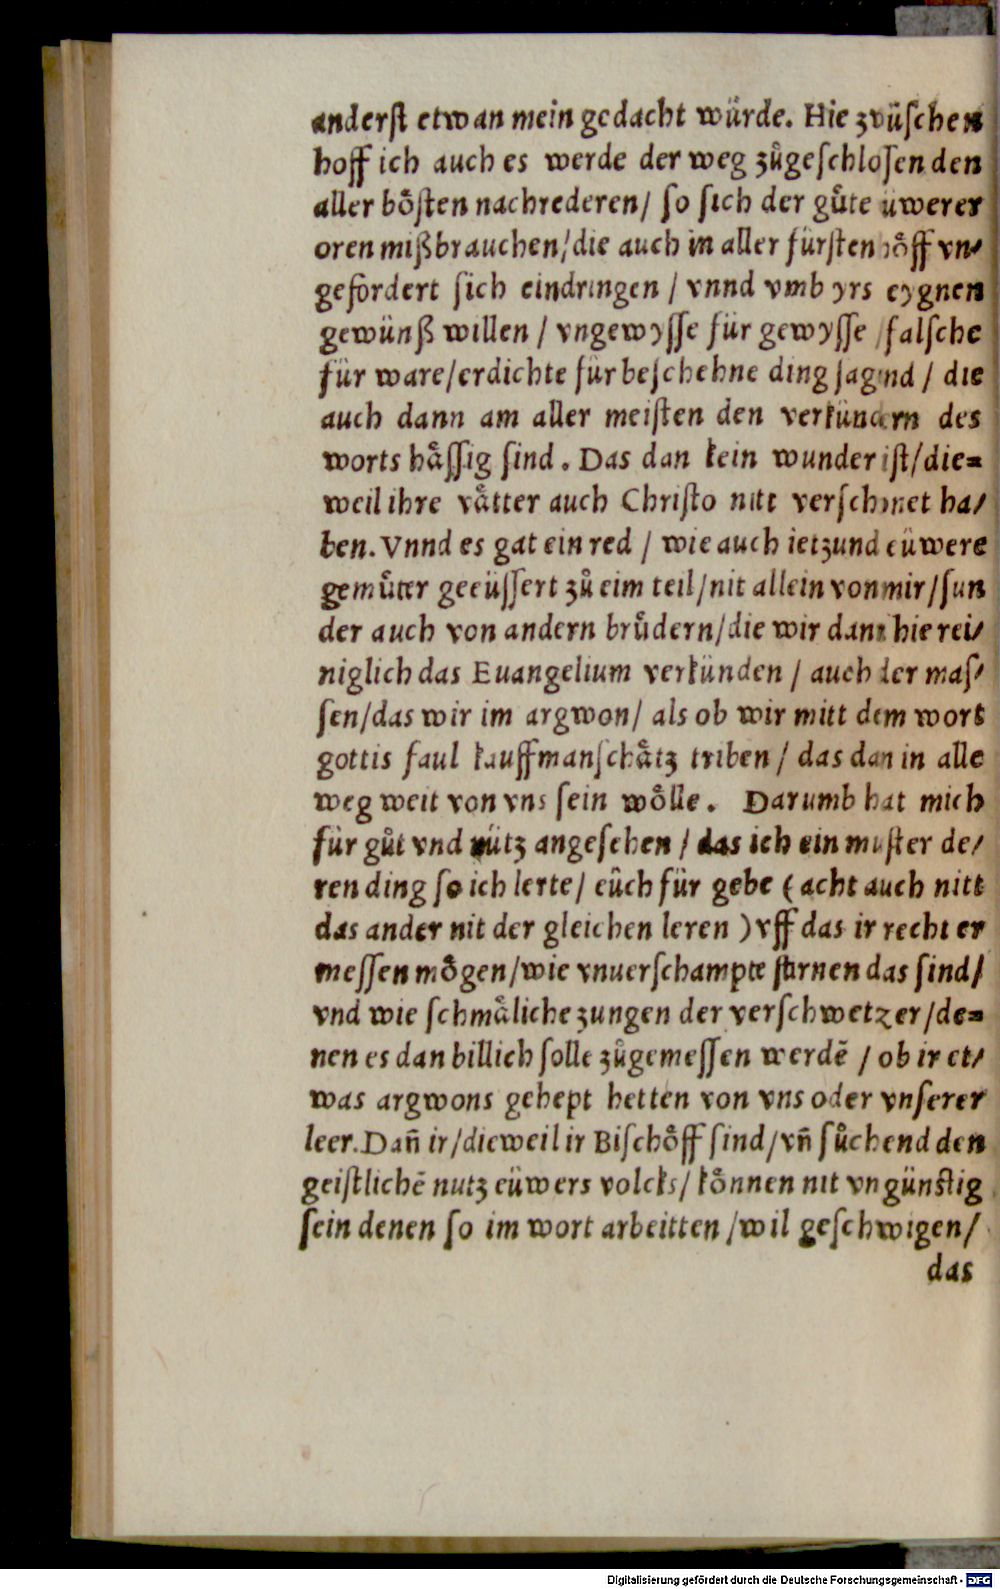 anderſt etwan mein gedacht würde. Hie zvüſchen
hoff ich auch es werde der weg zůgeſchloſen den
aller boͤſten nachrederen/ ſo ſich der guͤte üwerer
oren mißbrauchen/ die auch in aller fürſten hoͤff vn⸗
gefordert ſich eindringen / vnnd vmb yrs eygnen
gewünß willen / vngewyſſe für gewyſſe /falſche
für ware/erdichte für beſchehne ding ſagend / die
auch dann am aller meiſten den verkündern des
worts haͤſſig ſind . Das dan kein wunder iſt/die⸗
weil ihre vaͤtter auch Chriſto nitt verſchonet ha/
ben. Vnnd es gat ein red / wie auch ietzund eüwere
gemuͤtter geeüſſert zů eim teil/nit allein von mir/ſun
der auch von andern bruͤdern/die wir dann hie rei/
niglich das Euangelium verkünden / auch der maſ/
ſen/das wir im argwon/ als ob wir mitt dem wort
gottis faul kauffmanſchaͤtz triben / das dan in alle
weg weit von vns ſein woͤlle . Darumb hat mich
für gůt vnd nütz angeſehen / das ich ein muſter de/
ren ding ſo ich lerte/ eüch für gebe ( acht auch nitt
das ander nit der gleichen leren ) vff das ir recht er
meſſen moͤgen/wie vnuerſchampte ſtirnen das ſind/
vnd wie ſchmaͤliche zungen der verſchwetzer/de⸗
nen es dan billich ſolle zůgemeſſen werdē / ob ir et/
was argwons gehept hetten von vns oder vnſerer
leer. Dañ ir/dieweil ir Biſchoͤff ſind/vñ ſuͤchend den
geiſtlichē nutz eüwers volcks/ koͤnnen nit vngünſtig
ſein denen ſo im wort arbeitten /wil geſchwigen/
das
Digitalisierung gefördert durch die Deutsche Forschungsgemeinschaft - DFG